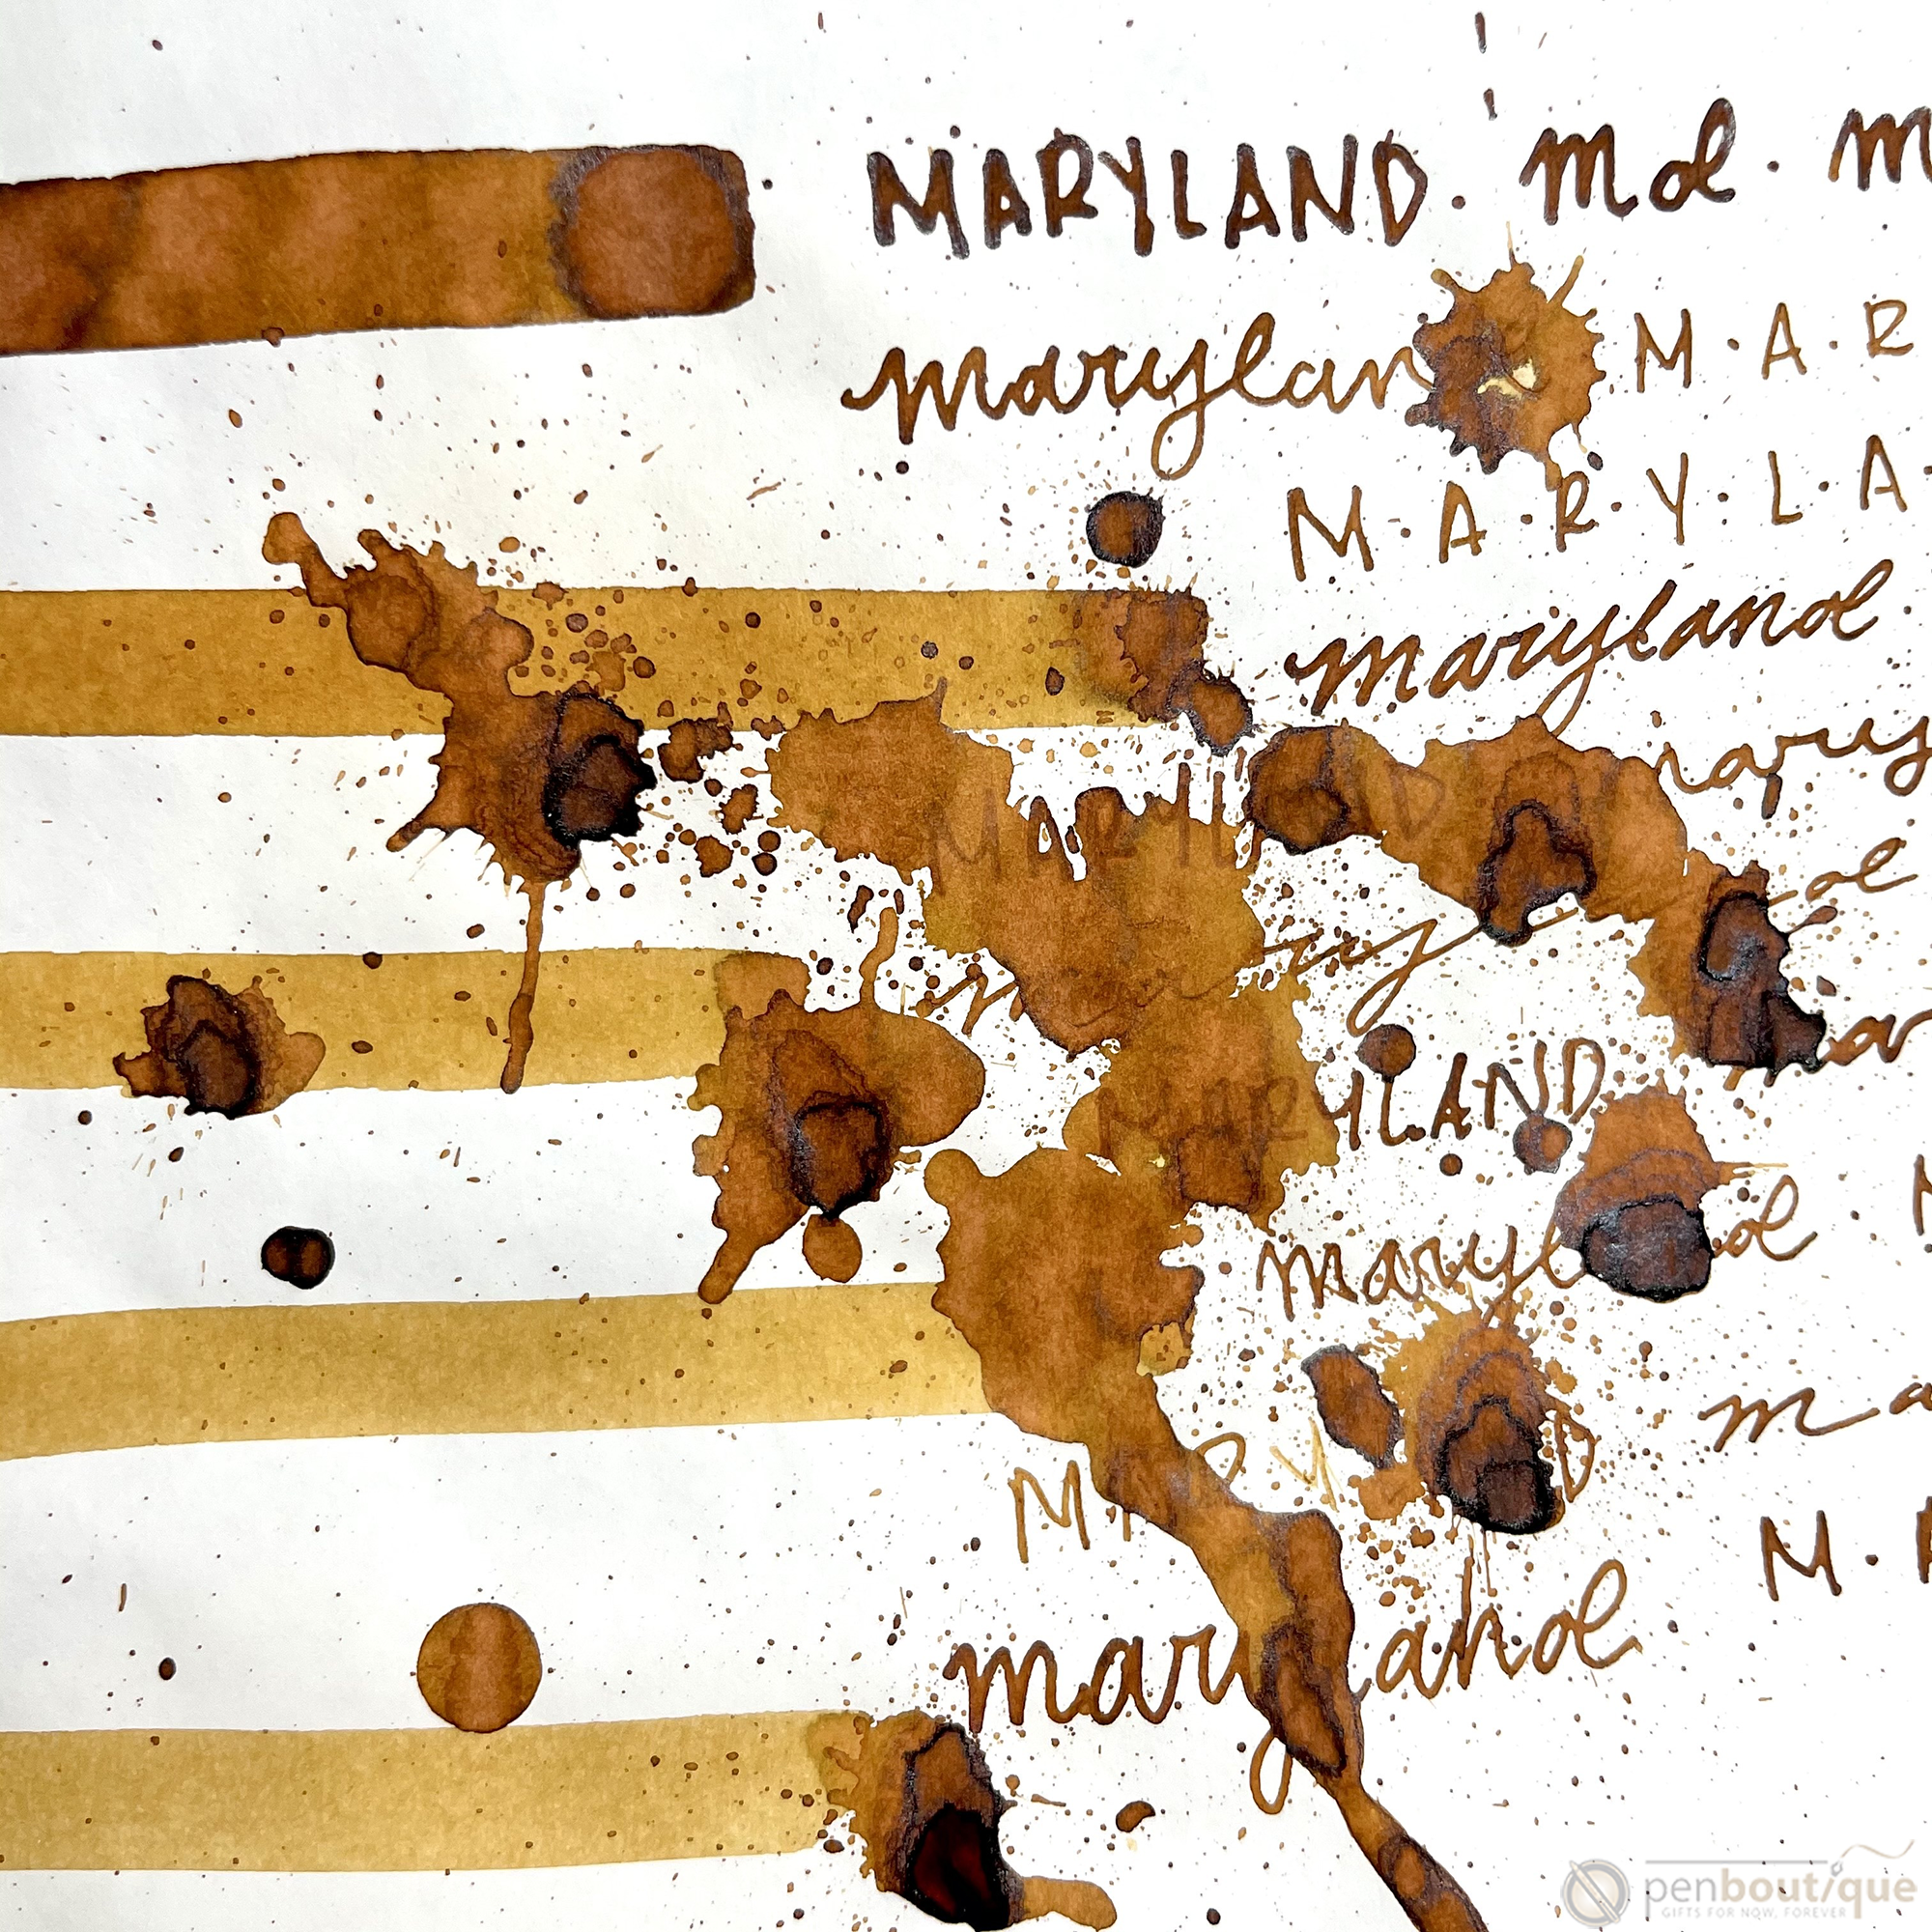 MARYLAND. md. m
marylan M.A.R
M.A.R.Y.L.A
maryland
MARYLAND mary
mary d
MARYLAND ar
maryl d.
MARY D ma
maryland M.A
penboutique
GIFTS FOR NOW, FOREVER